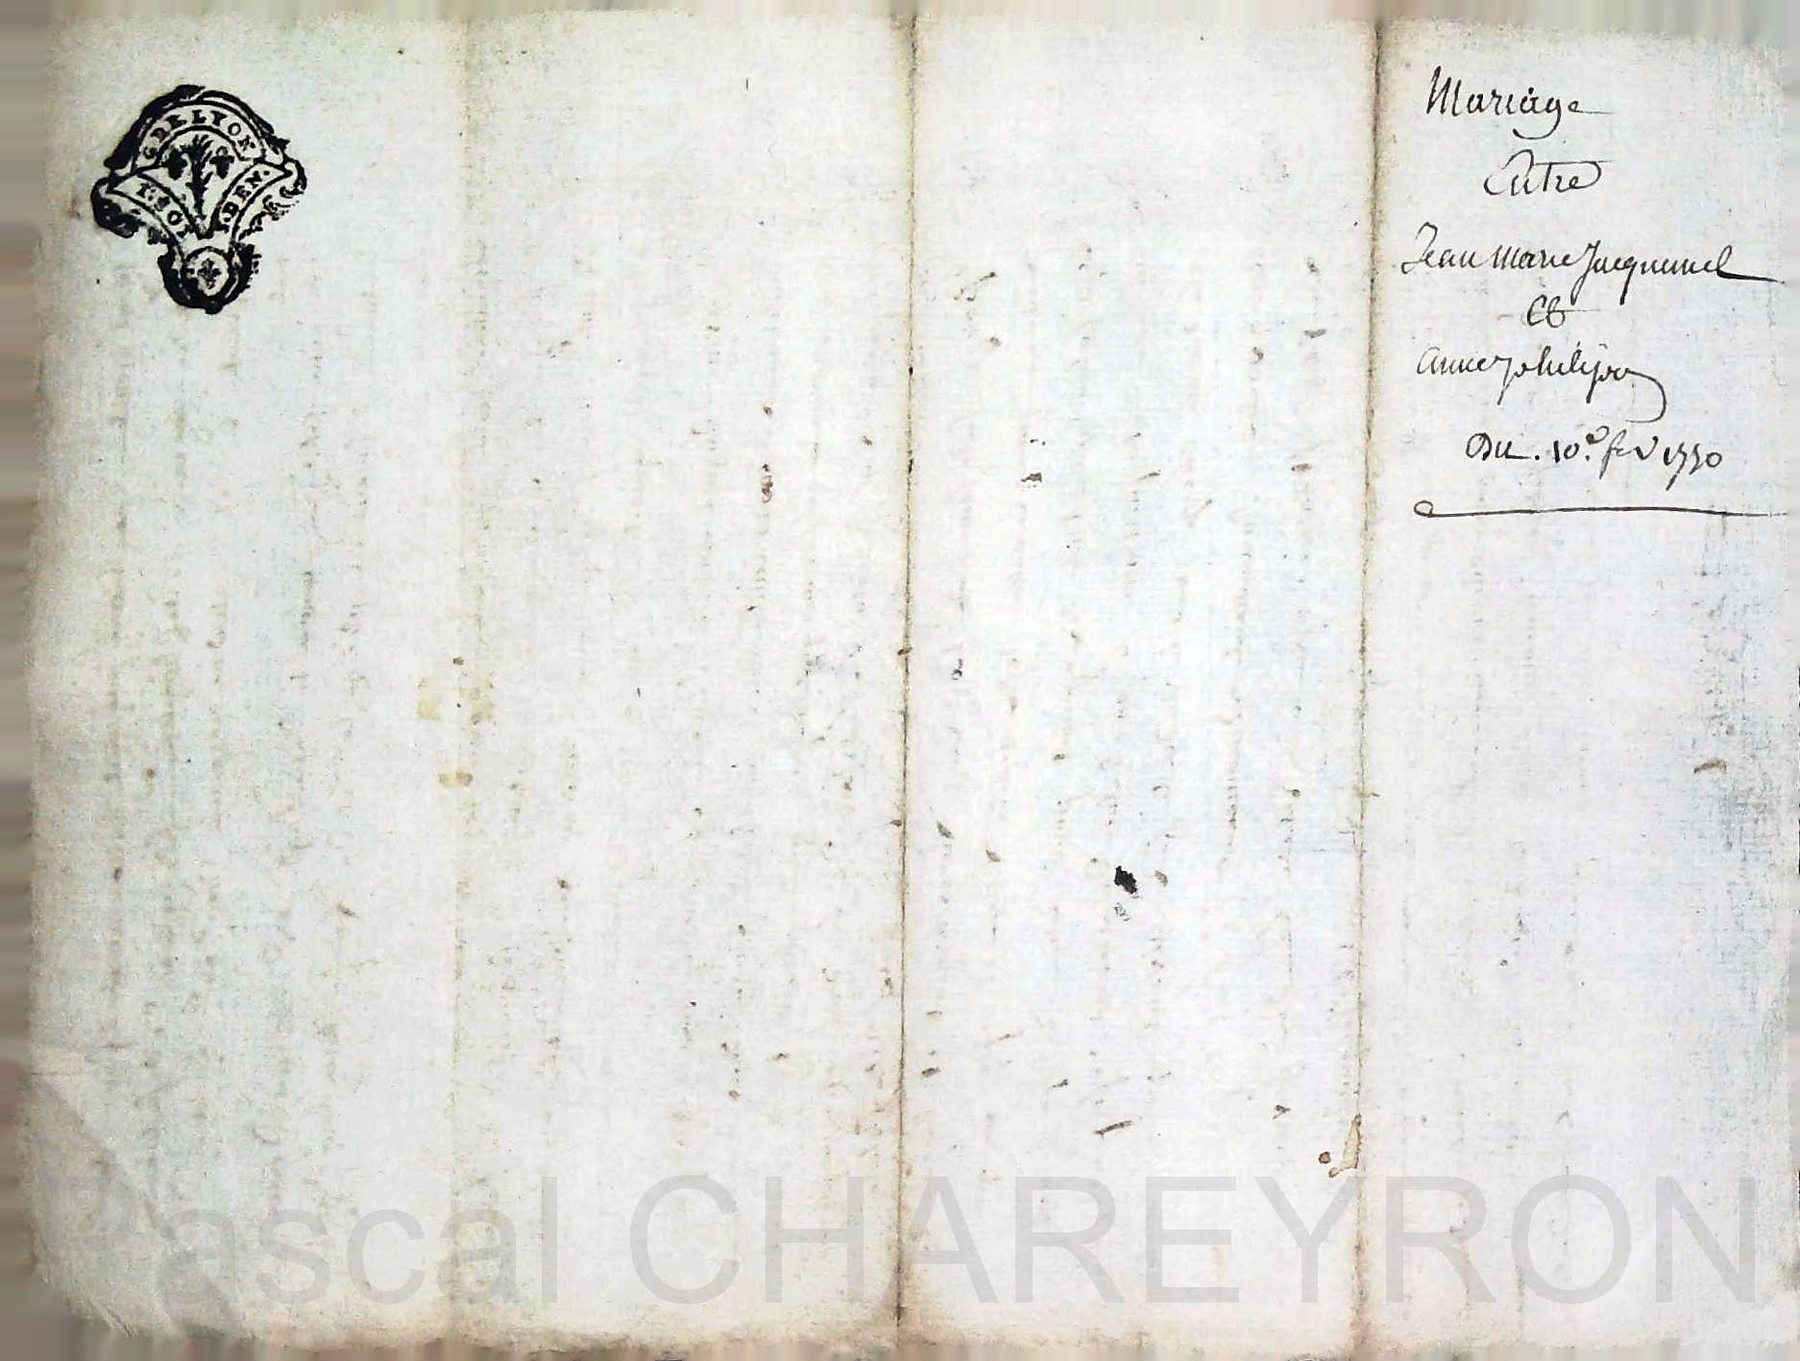 G. DE LYON
1. SO 4. DEN.
Mariage
Entre
Jean Marie Jacquemel
Et
anne philipon
Du . 10.e fev 1770
Pascal CHAREYRON